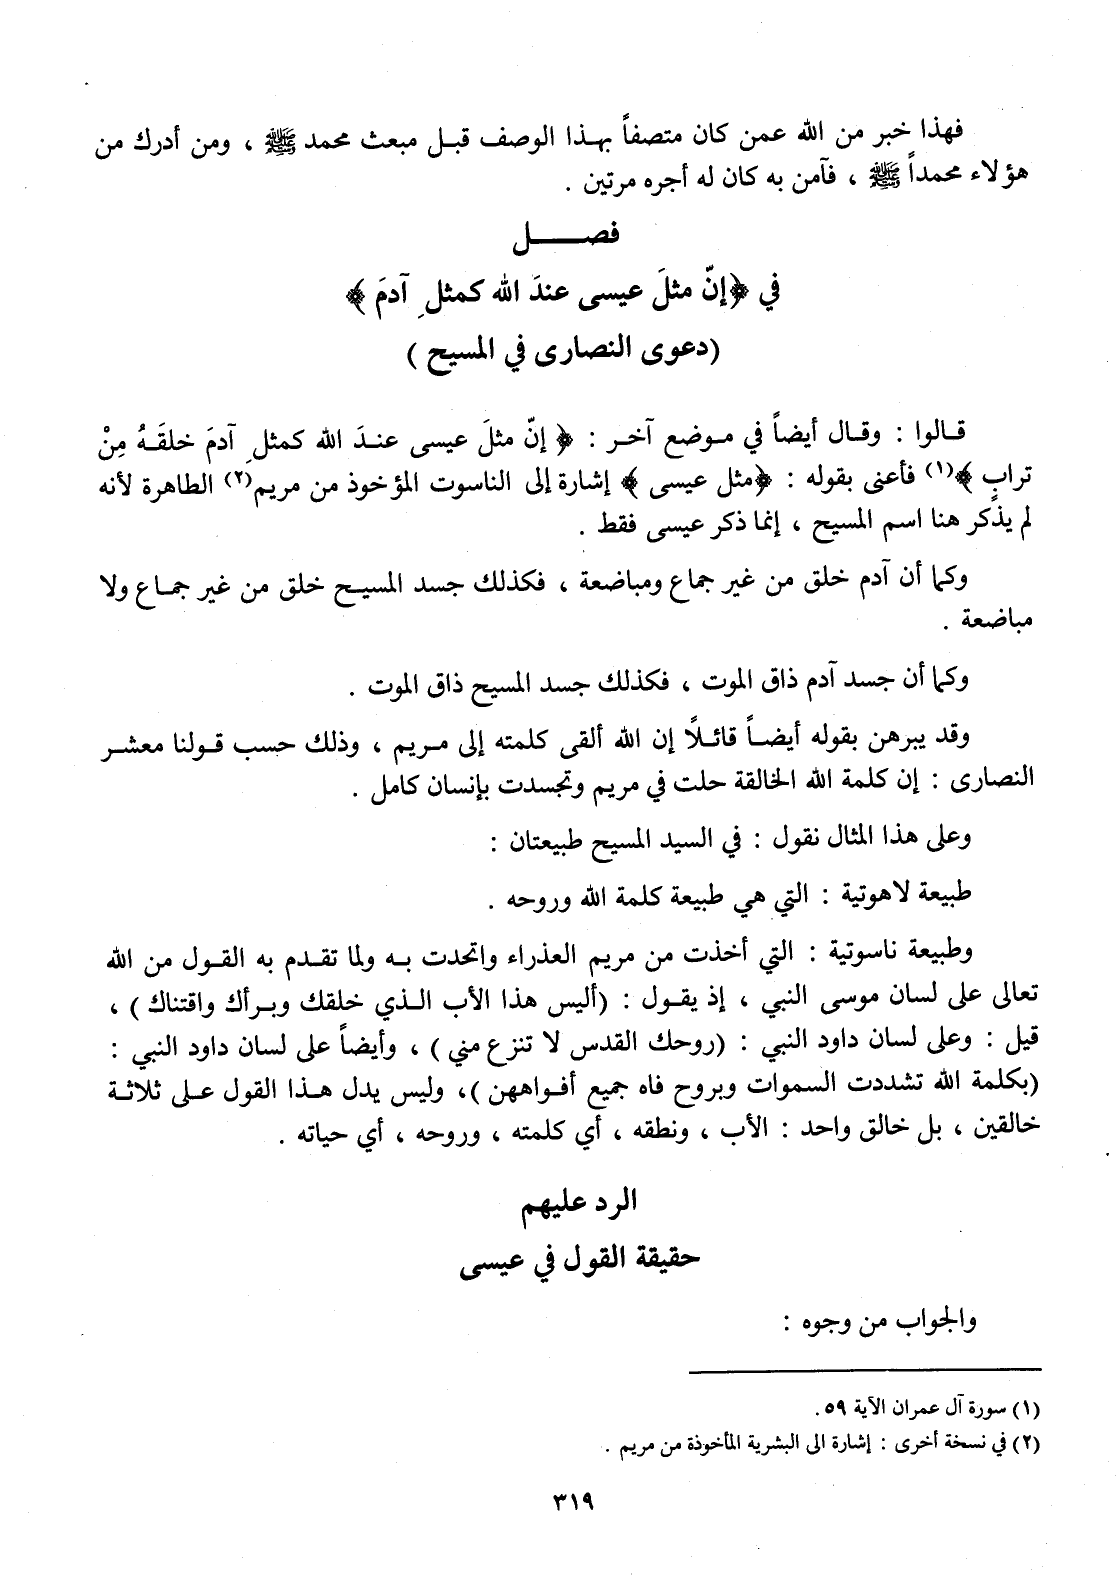 فهذا خبر من الله عمن كان متصفاً بهذا الوصف قبل مبعث محمد ﷺ ، ومن أدرك من
هؤلاء محمداً ﷺ ، فآمن به كان له أجره مرتين .
فصـــــل
في ﴿إنّ مثلَ عيسى عندَ الله كمثلِ آدمَ ﴾
(دعوى النصارى في المسيح )
قالوا : وقال أيضاً في موضع آخر : ﴿ إنّ مثلَ عيسى عندَ الله كمثلِ آدمَ خلقَهُ مِنْ
ترابٍ ﴾(١) فأعنى بقوله : ﴿مثل عيسى ﴾ إشارة إلى الناسوت المؤخوذ من مريم(٢) الطاهرة لأنه
لم يذكر هنا اسم المسيح ، إنما ذكر عيسى فقط .
وكما أن آدم خلق من غير جماع ومباضعة ، فكذلك جسد المسيح خلق من غير جماع ولا
مباضعة .
وكما أن جسد آدم ذاق الموت ، فكذلك جسد المسيح ذاق الموت .
وقد يبرهن بقوله أيضاً قائلاً إن الله ألقى كلمته إلى مريم ، وذلك حسب قولنا معشر
النصارى : إن كلمة الله الخالقة حلت في مريم وتجسدت بإنسان كامل .
وعلى هذا المثال نقول : في السيد المسيح طبيعتان :
طبيعة لاهوتية : التي هي طبيعة كلمة الله وروحه .
وطبيعة ناسوتية : التي أخذت من مريم العذراء واتحدت به ولما تقدم به القول من الله
تعالى على لسان موسى النبي ، إذ يقول : (أليس هذا الأب الذي خلقك وبرأك واقتناك ) ،
قيل : وعلى لسان داود النبي : (روحك القدس لا تنزع مني ) ، وأيضاً على لسان داود النبي :
(بكلمة الله تشددت السموات وبروح فاه جميع أفواههن )، وليس يدل هذا القول على ثلاثة
خالقين ، بل خالق واحد : الأب ، ونطقه ، أي كلمته ، وروحه ، أي حياته .
الرد عليهم
حقيقة القول في عيسى
والجواب من وجوه :
(١) سورة آل عمران الآية ٥٩.
(٢) في نسخة أخرى : إشارة الى البشرية المأخوذة من مريم .
٣١٩